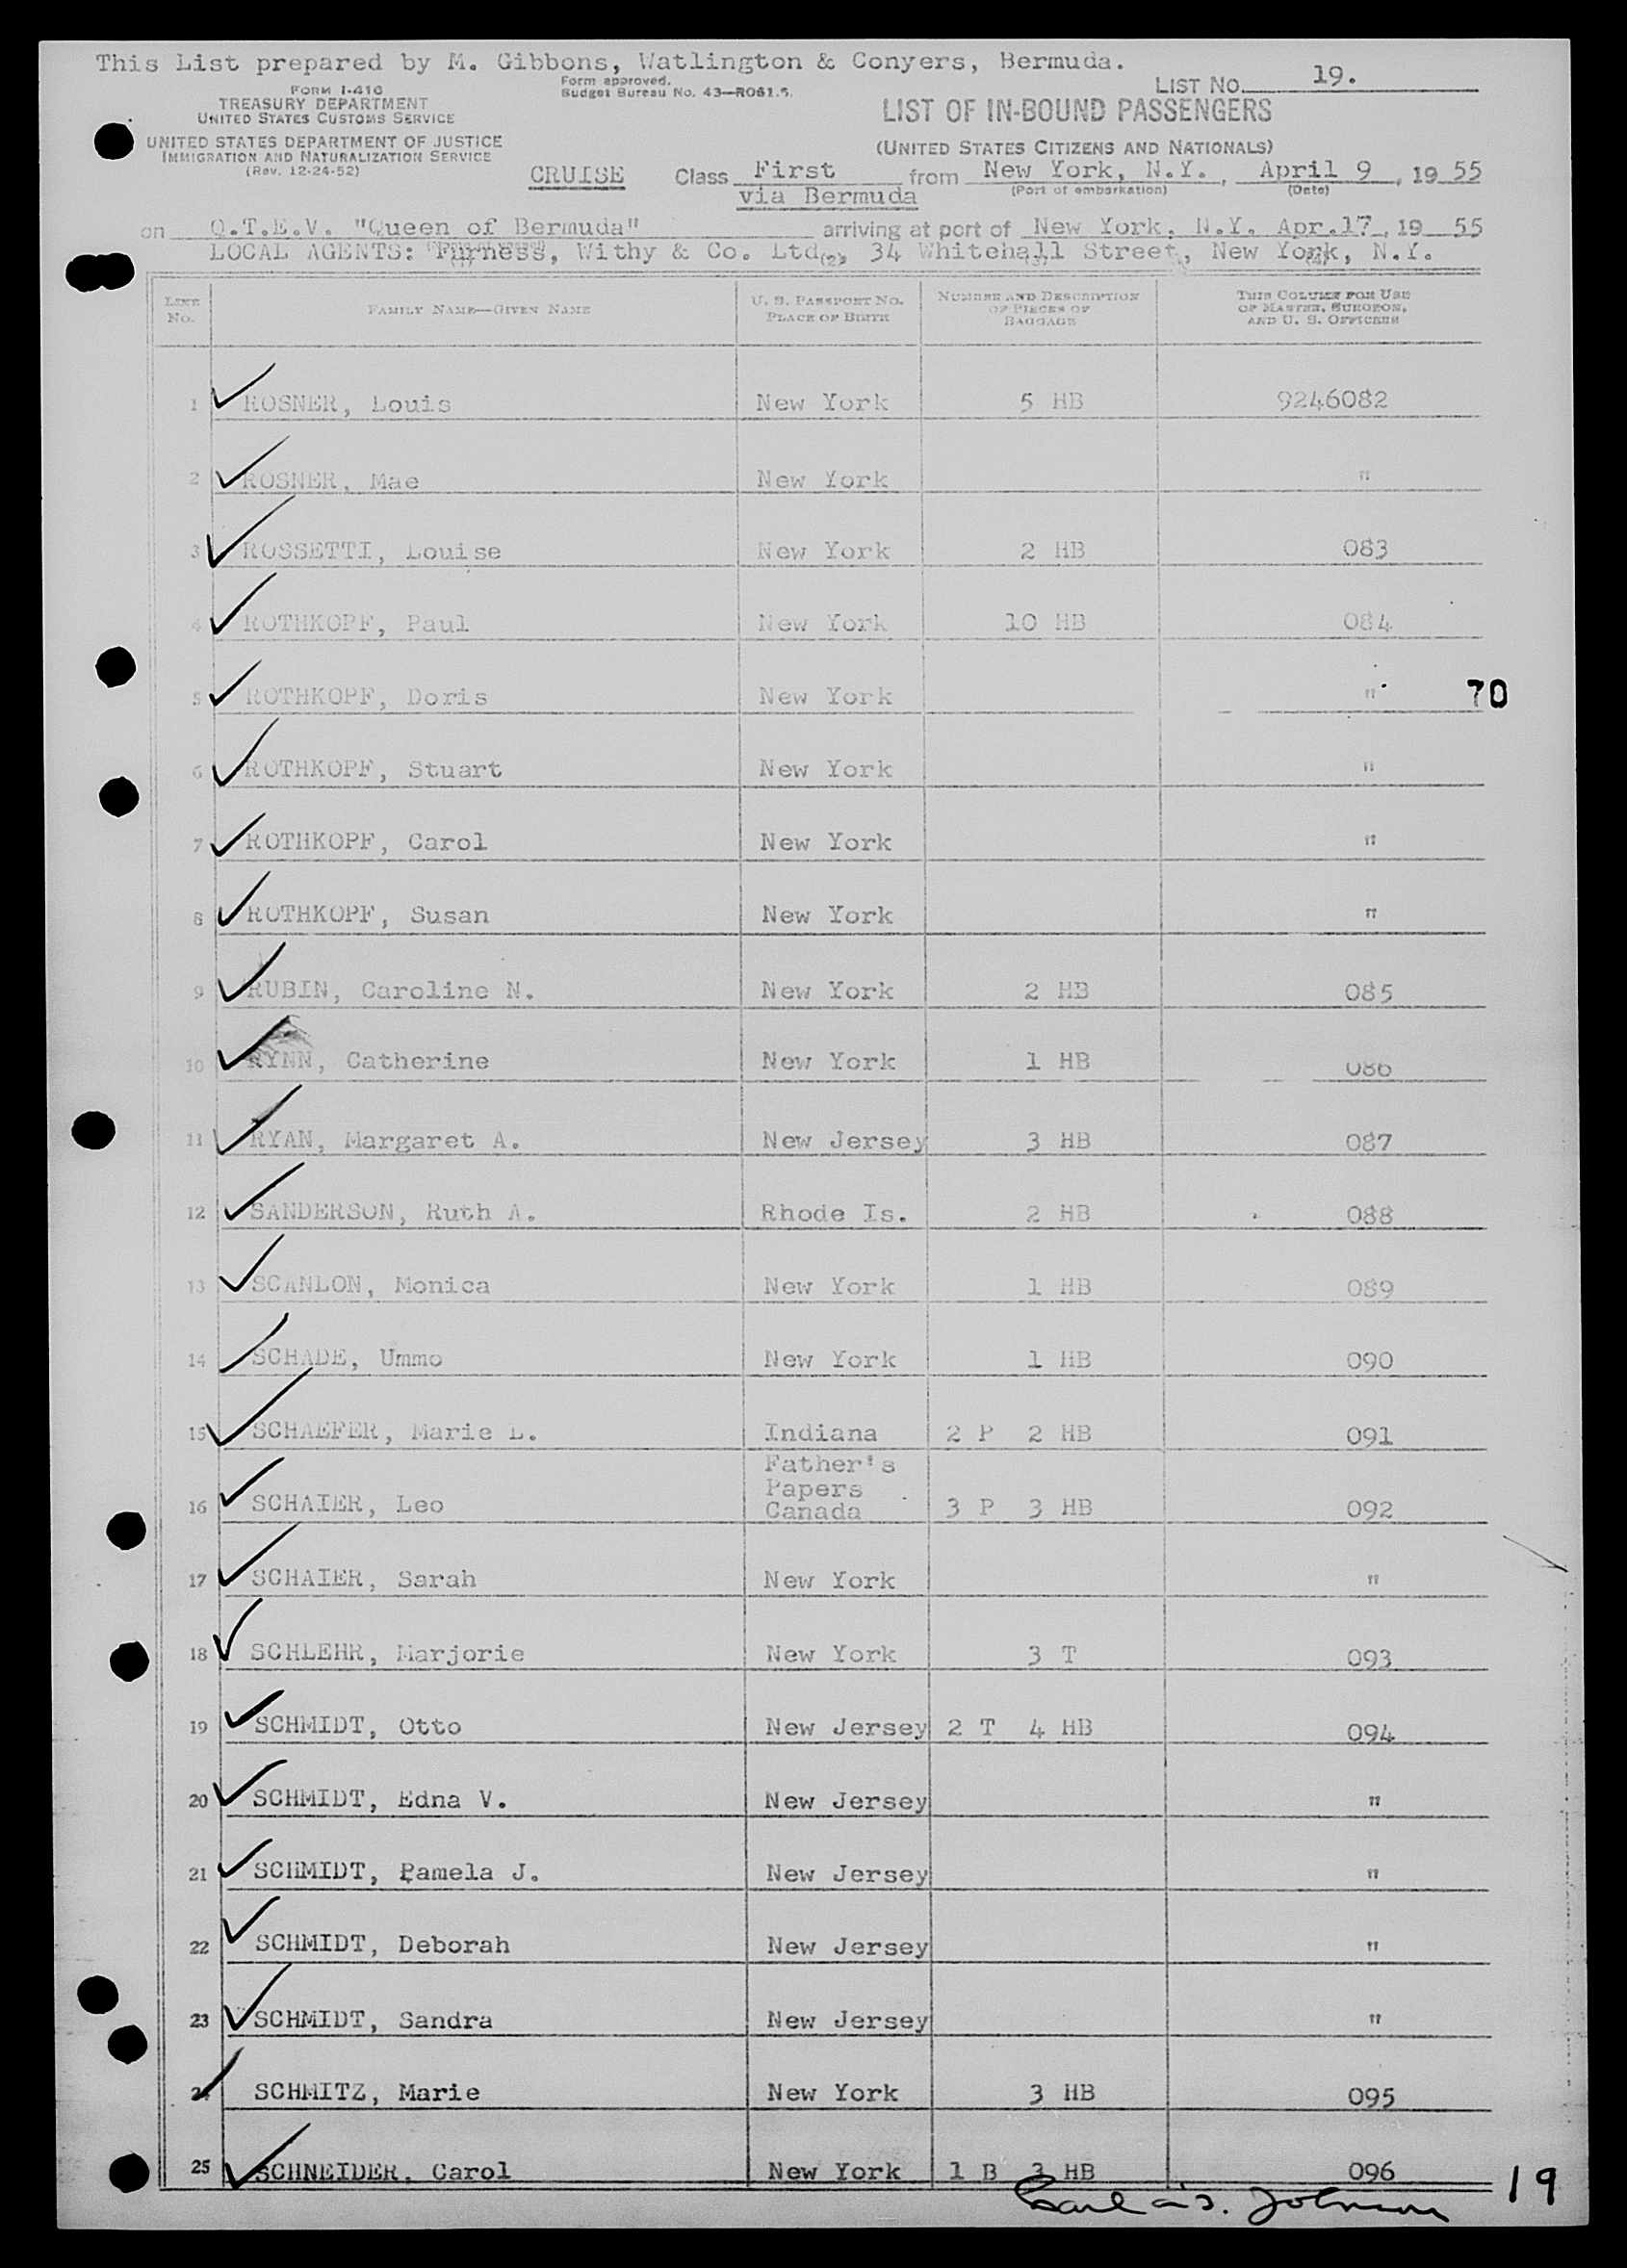 This List prepared by M. Gibbons, Watlington & Conyers, Bermuda.
Form approved.
Budget Bureau No. 43—R061.5.
LIST NO. 19.
FORM I-416
TREASURY DEPARTMENT
UNITED STATES CUSTOMS SERVICE
LIST OF IN-BOUND PASSENGERS
UNITED STATES DEPARTMENT OF JUSTICE
IMMIGRATION AND NATURALIZATION SERVICE
(Rev. 12-24-52)
(UNITED STATES CITIZENS AND NATIONALS)
CRUISE Class First from New York, N.Y., April 9, 19 55
via Bermuda (Port of embarkation) (Date)
on Q.T.E.V. "Queen of Bermuda" arriving at port of New York, N.Y. Apr.17, 19 55
LOCAL AGENTS: Furness, Withy & Co. Ltd., 34 Whitehall Street, New York, N.Y.
(1) (2) (3) (4)
LINE No. FAMILY NAME—GIVEN NAME U. S. PASSPORT NO. PLACE OF BIRTH NUMBER AND DESCRIPTION OF PIECES OF BAGGAGE THIS COLUMN FOR USE OF MASTER, SURGEON, AND U. S. OFFICERS
1 ROSNER, Louis New York 5 HB 9246082
2 ROSNER, Mae New York "
3 ROSSETTI, Louise New York 2 HB 083
4 ROTHKOPF, Paul New York 10 HB 084
5 ROTHKOPF, Doris New York " 70
6 ROTHKOPF, Stuart New York "
7 ROTHKOPF, Carol New York "
8 ROTHKOPF, Susan New York "
9 RUBIN, Caroline N. New York 2 HB 085
10 RYNN, Catherine New York 1 HB 086
11 RYAN, Margaret A. New Jersey 3 HB 087
12 SANDERSON, Ruth A. Rhode Is. 2 HB 088
13 SCANLON, Monica New York 1 HB 089
14 SCHADE, Ummo New York 1 HB 090
15 SCHAEFER, Marie L. Indiana 2 P 2 HB 091
Father's
Papers
16 SCHAIER, Leo Canada 3 P 3 HB 092
17 SCHAIER, Sarah New York "
18 SCHLEHR, Marjorie New York 3 T 093
19 SCHMIDT, Otto New Jersey 2 T 4 HB 094
20 SCHMIDT, Edna V. New Jersey "
21 SCHMIDT, Pamela J. New Jersey "
22 SCHMIDT, Deborah New Jersey "
23 SCHMIDT, Sandra New Jersey "
24 SCHMITZ, Marie New York 3 HB 095
25 SCHNEIDER, Carol New York 1 B 3 HB 096
Johnson 19